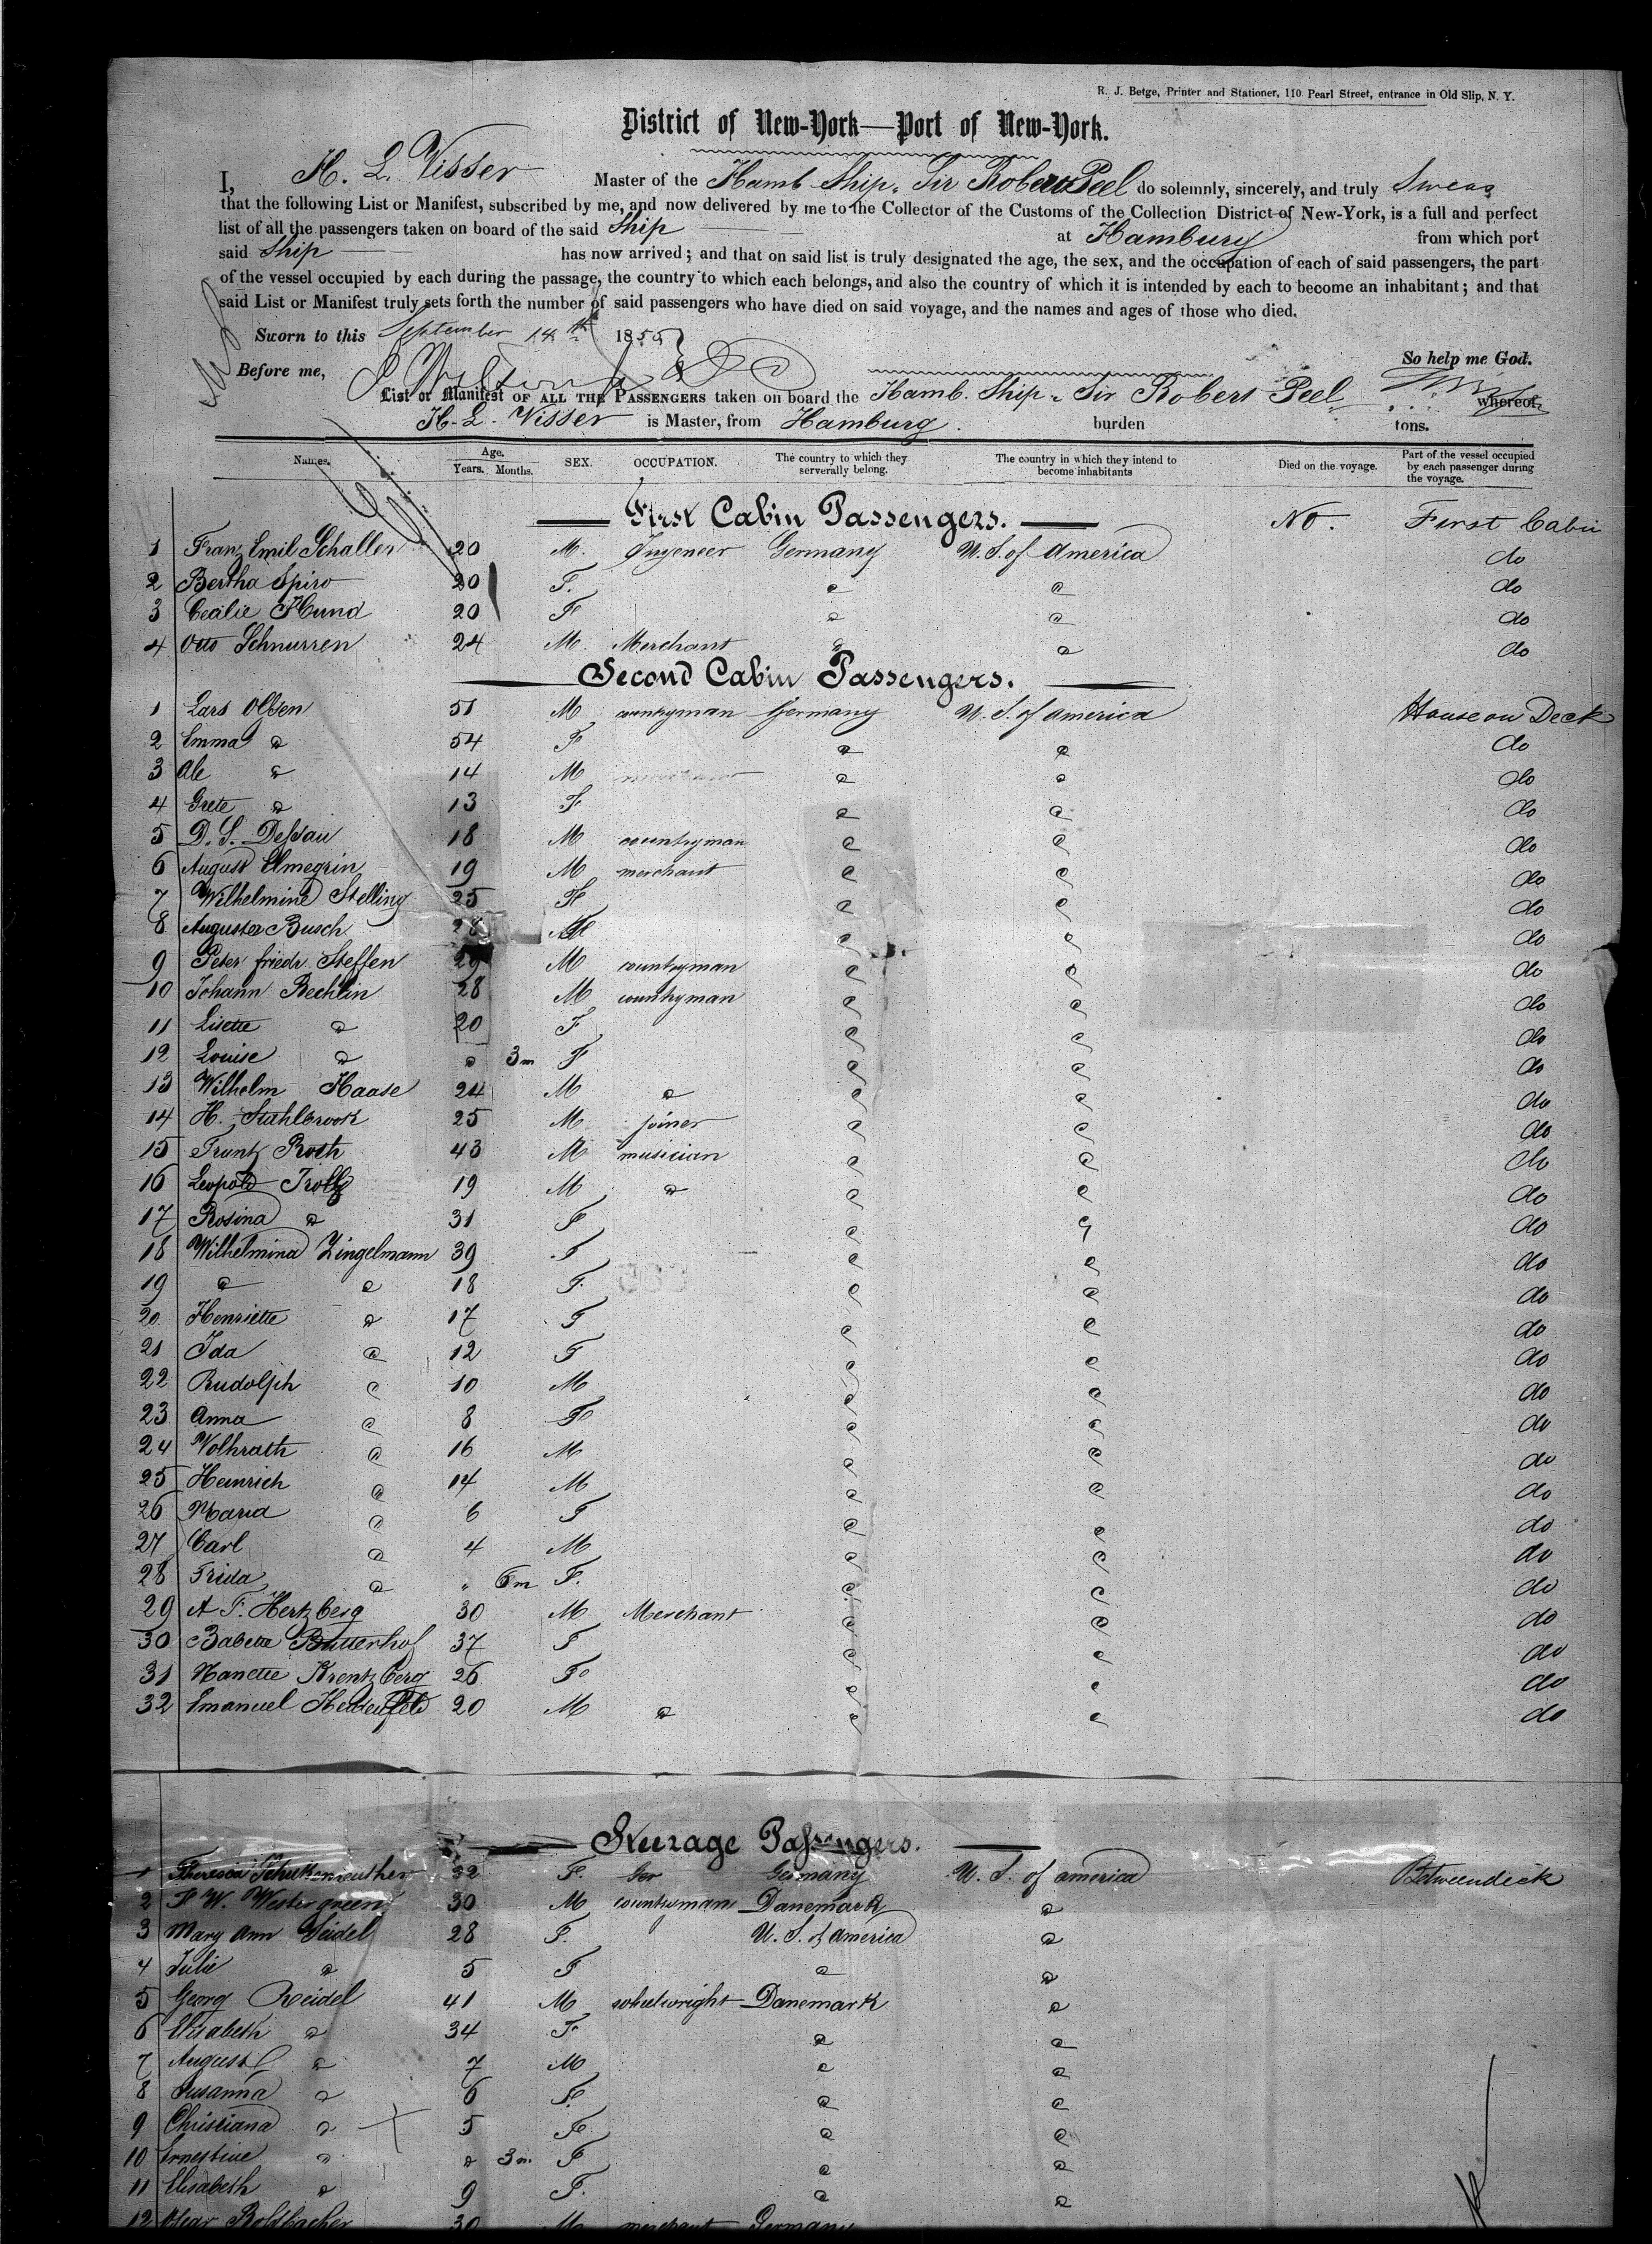 R. J. Betge, Printer and Stationer, 110 Pearl Street, entrance in Old Slip, N. Y.
District of New-York—Port of New-York.
I, H. L. Visser Master of the Hamb Ship. Sir Robert Peel do solemnly, sincerely, and truly Swear
that the following List or Manifest, subscribed by me, and now delivered by me to the Collector of the Customs of the Collection District of New-York, is a full and perfect
list of all the passengers taken on board of the said Ship at Hamburg from which port
said Ship has now arrived; and that on said list is truly designated the age, the sex, and the occupation of each of said passengers, the part
of the vessel occupied by each during the passage, the country to which each belongs, and also the country of which it is intended by each to become an inhabitant; and that
said List or Manifest truly sets forth the number of said passengers who have died on said voyage, and the names and ages of those who died.
Sworn to this September 14th 1855
So help me God.
Before me,
List or Manifest OF ALL THE PASSENGERS taken on board the Hamb. Ship. Sir Robert Peel whereof
H. L. Visser is Master, from Hamburg. burden tons.
Names. Age. Years. Months. SEX. OCCUPATION. The country to which they serverally belong. The country in which they intend to become inhabitants Died on the voyage. Part of the vessel occupied by each passenger during the voyage.
First Cabin Passengers. No. First Cabin
1 Franz Emil Schaller 20 M. Ingeneer Germany U. S. of America do
2 Bertha Spiro 20 F. " " do
3 Cecilie Hund 20 F " " do
4 Otto Schnurren 24 M. Merchant " " do
Second Cabin Passengers.
1 Lars Olsen 51 M countryman Germany U. S. of America House on Deck
2 Emma " 54 F " " do
3 Ale " 14 M " " do
4 Grete " 13 F " " do
5 D. S. Dessau 18 M countryman " " do
6 August Elmegrin 19 M merchant " " do
7 Wilhelmine Stelling 25 F " " do
8 Busch 28 " " do
9 Peter friedr. Steffen 29 M countryman " " do
10 Johann Bechlin 28 M countryman " " do
11 Lisette " 20 F " " do
12 Louise " " 3m F " " do
13 Wilhelm Haase 24 M " " " do
14 H. Stuhlbrook 25 M joiner " " do
15 Frantz Roth 43 M musician " " do
16 Leopold 19 M " " " do
17 Rosina " 31 F " " do
18 Wilhelmina Zingelmann 39 F " " do
19 " " 18 F. " " do
20 Henriette " 17 F " " do
21 Ida " 12 F " " do
22 Rudolph " 10 M " " do
23 Anna " 8 F " " do
24 Volhrath " 16 M " " do
25 Heinrich " 14 M " " do
26 Maria " 6 F " " do
27 Carl " 4 M " " do
28 Frida " " 6m F. " " do
29 A. F. Hertzberg 30 M Merchant " " do
30 Babette Butterhof 37 F " " do
31 Nanette Krentzberg 26 F " " do
32 Emanuel Heidenfeld 20 M " " " do
Steerage Passengers.
1 Theresa 32 F. Germany U. S. of america Betweendeck
2 F. W. Westergreen 30 M countryman Danemark "
3 Mary Ann Seidel 28 F. U. S. of America "
4 Julie " 5 F " "
5 Georg Reidel 41 M wheelwright Danemark "
6 Elisabeth " 34 F " "
7 August " 7 M " "
8 Susanna " 6 F. " "
9 Christiana " 5 F " "
10 Ernestine " " 3m. F " "
11 Elisabeth " 9 F. " "
12 30 M merchant Germany